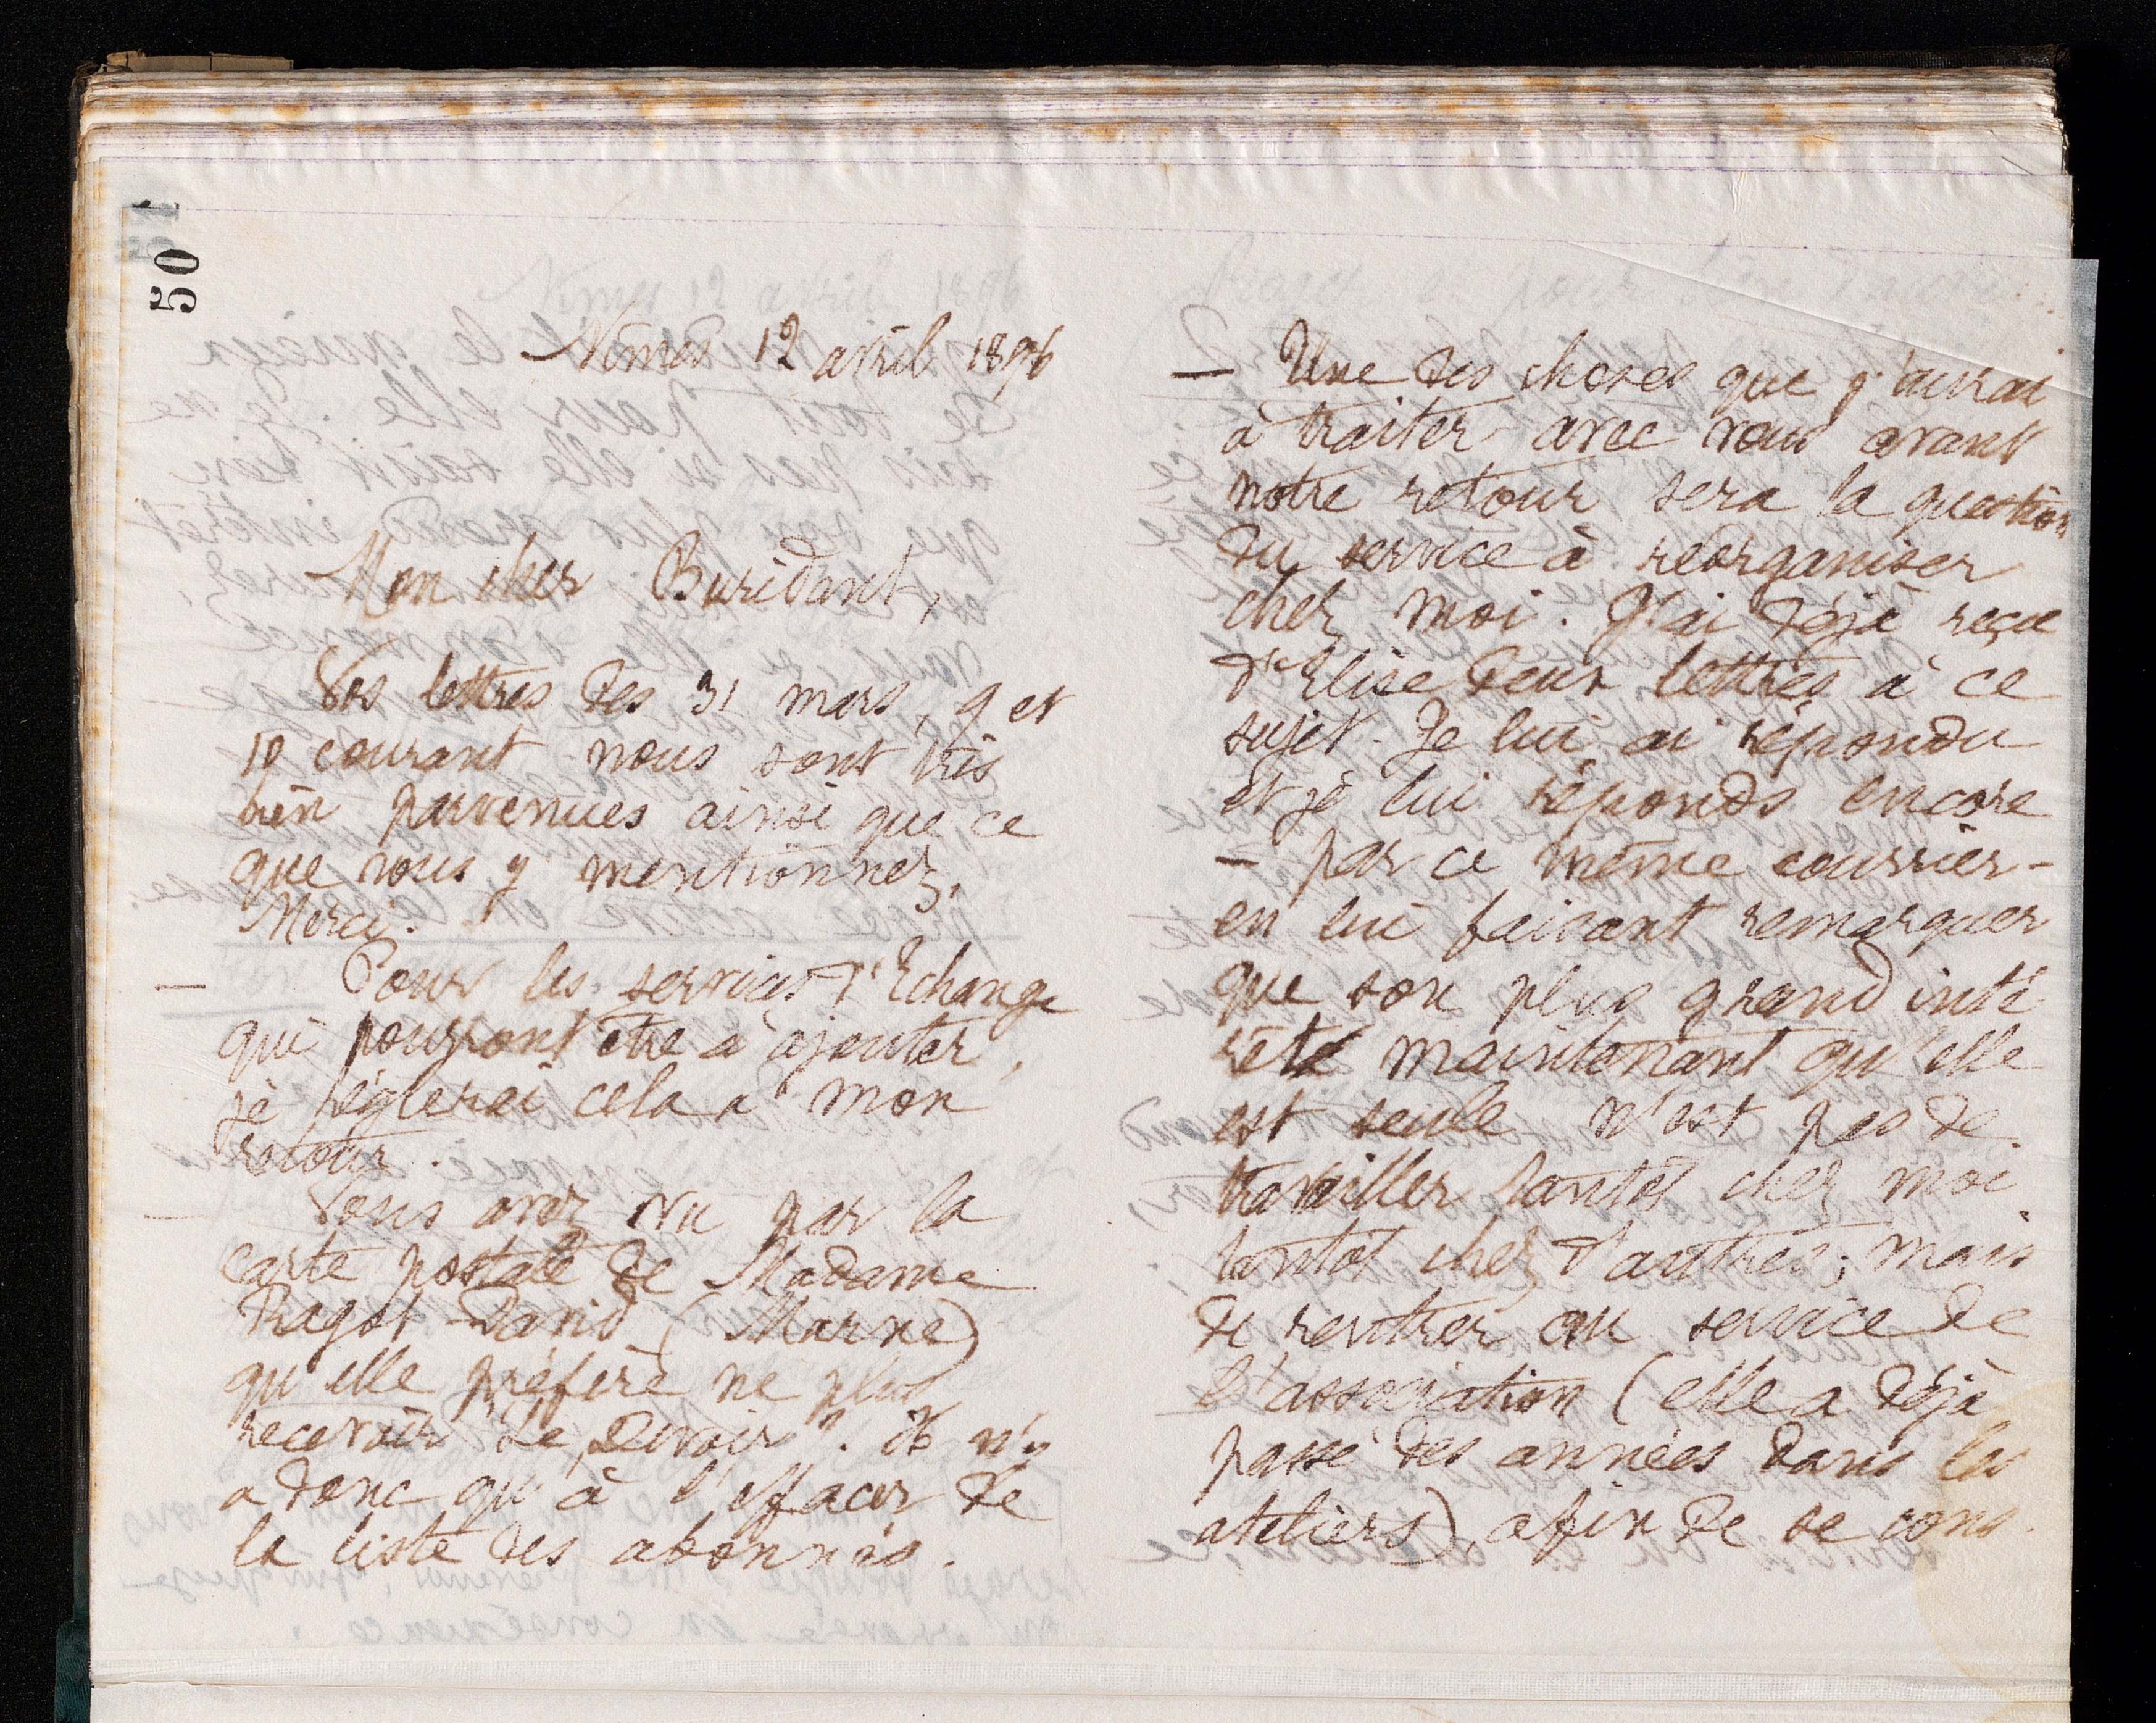 50
Nîmes 12 avril 1896
Mon cher Buridant,
Vos lettres des 31 mars, 9 et
10 courant nous sont très
bien parvenues ainsi que ce
que vous y mentionnez.
Merci.
— Pour les services d'Echange
qui pourront être à ajouter,
je réglerai cela à mon
retour.
— Vous avez vu par la
carte postale de Madame
Ragot-David (Marne)
qu'elle préfère ne plus
recevoir "Le Devoir". Il n'y
a donc qu'à l'effacer de
la liste des abonnés.
— Une des choses que j'aurai
à traiter avec vous avant
notre retour sera la question
du service à réorganiser
chez moi. J'ai déjà reçu
d'Elise deux lettres à ce
sujet. Je lui ai répondu
et je lui réponds encore
— par ce même courrier —
en lui faisant remarquer
que son plus grand inté
rêt maintenant qu'elle
est seule n'est pas de
travailler tantôt chez moi
tantôt chez d'autres; mais
de rentrer au service de
l'association (elle a déjà
passé des années dans les
ateliers), afin de se cons